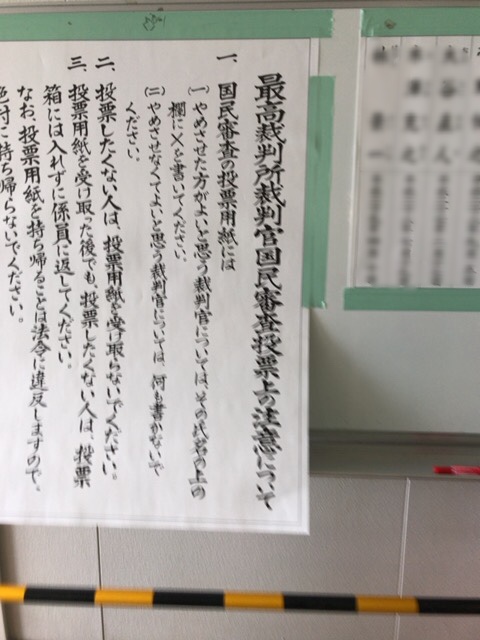 最高裁判所裁判官国民審査投票上の注意について
一、国民審査の投票用紙には
(一)やめさせた方がよいと思う裁判官については、その氏名の上の
欄に×を書いてください。
(二)やめさせなくてよいと思う裁判官については、何も書かないで
ください。
二、投票したくない人は、投票用紙を受け取らないでください。
三、投票用紙を受け取った後でも、投票したくない人は、投票
箱には入れずに係員に返してください。
なお、投票用紙を持ち帰ることは法令に違反しますので、
絶対に持ち帰らないでください。